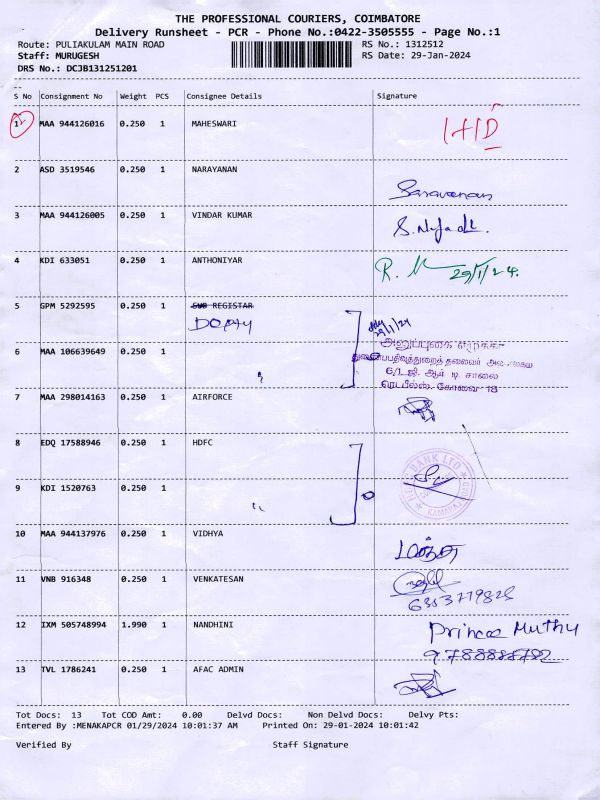 THE PROFESSIONAL COURIERS, COIMBATORE
Delivery Runsheet - PCR - Phone No.:0422-3505555 - Page No.:1
Route: PULIAKULAM MAIN ROAD RS No.: 1312512
Staff: MURUGESH RS Date: 29-Jan-2024
DRS No.: DCJB131251201
S No Consignment No Weight PCS Consignee Details Signature
1 MAA 944126016 0.250 1 MAHESWARI
2 ASD 3519546 0.250 1 NARAYANAN
Saravanan
3 MAA 944126005 0.250 1 VINDAR KUMAR
4 KDI 633051 0.250 1 ANTHONIYAR
29/1/24.
5 GPM 5292595 0.250 1 SUB REGISTAR
29/1/24
6 MAA 106639649 0.250 1 "
6/1 ஜி. ஆர் டி சாலை
கோவை 18
7 MAA 298014163 0.250 1 AIRFORCE
8 EDQ 17588946 0.250 1 HDFC
BANK LTD
KAMARAJ ROAD
9 KDI 1520763 0.250 1 "
10 MAA 944137976 0.250 1 VIDHYA
11 VNB 916348 0.250 1 VENKATESAN
12 IXM 505748994 1.990 1 NANDHINI
Prince Muthu
13 TVL 1786241 0.250 1 AFAC ADMIN
Tot Docs: 13 Tot COD Amt: 0.00 Delvd Docs: Non Delvd Docs: Delvy Pts:
Entered By :MENAKAPCR 01/29/2024 10:01:37 AM Printed On: 29-01-2024 10:01:42
Verified By Staff Signature